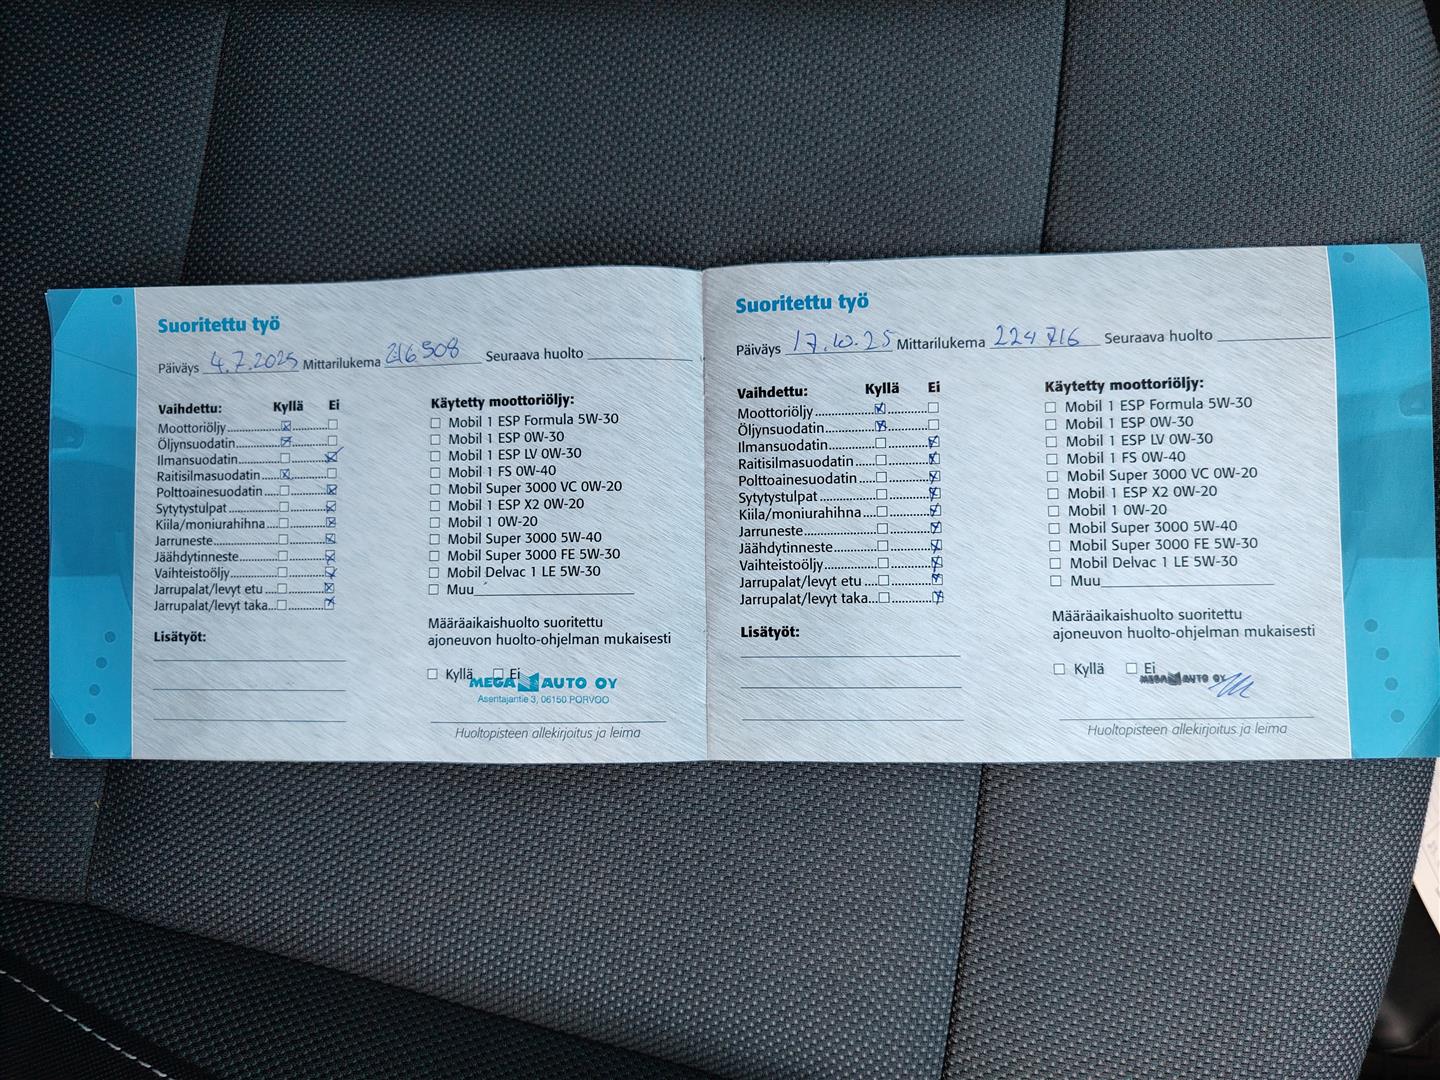 Suoritettu työ
Päiväys 4.7.2025 Mittarilukema 216508 Seuraava huolto
Vaihdettu: Kyllä Ei
Moottoriöljy
Öljynsuodatin
Ilmansuodatin
Raitisilmasuodatin
Polttoainesuodatin
Sytytystulpat
Kiila/moniurahihna
Jarruneste
Jäähdytinneste
Vaihteistoöljy
Jarrupalat/levyt etu
Jarrupalat/levyt taka
Lisätyöt:
Käytetty moottoriöljy:
Mobil 1 ESP Formula 5W-30
Mobil 1 ESP 0W-30
Mobil 1 ESP LV 0W-30
Mobil 1 FS 0W-40
Mobil Super 3000 VC 0W-20
Mobil 1 ESP X2 0W-20
Mobil 1 0W-20
Mobil Super 3000 5W-40
Mobil Super 3000 FE 5W-30
Mobil Delvac 1 LE 5W-30
Muu
Määräaikaishuolto suoritettu
ajoneuvon huolto-ohjelman mukaisesti
Kyllä Ei
MEGA AUTO OY
Asentajantie 3, 06150 PORVOO
Huoltopisteen allekirjoitus ja leima
Suoritettu työ
Päiväys 17.10.25 Mittarilukema 224716 Seuraava huolto
Vaihdettu: Kyllä Ei
Moottoriöljy
Öljynsuodatin
Ilmansuodatin
Raitisilmasuodatin
Polttoainesuodatin
Sytytystulpat
Kiila/moniurahihna
Jarruneste
Jäähdytinneste
Vaihteistoöljy
Jarrupalat/levyt etu
Jarrupalat/levyt taka
Lisätyöt:
Käytetty moottoriöljy:
Mobil 1 ESP Formula 5W-30
Mobil 1 ESP 0W-30
Mobil 1 ESP LV 0W-30
Mobil 1 FS 0W-40
Mobil Super 3000 VC 0W-20
Mobil 1 ESP X2 0W-20
Mobil 1 0W-20
Mobil Super 3000 5W-40
Mobil Super 3000 FE 5W-30
Mobil Delvac 1 LE 5W-30
Muu
Määräaikaishuolto suoritettu
ajoneuvon huolto-ohjelman mukaisesti
Kyllä Ei
MEGA AUTO OY
Huoltopisteen allekirjoitus ja leima